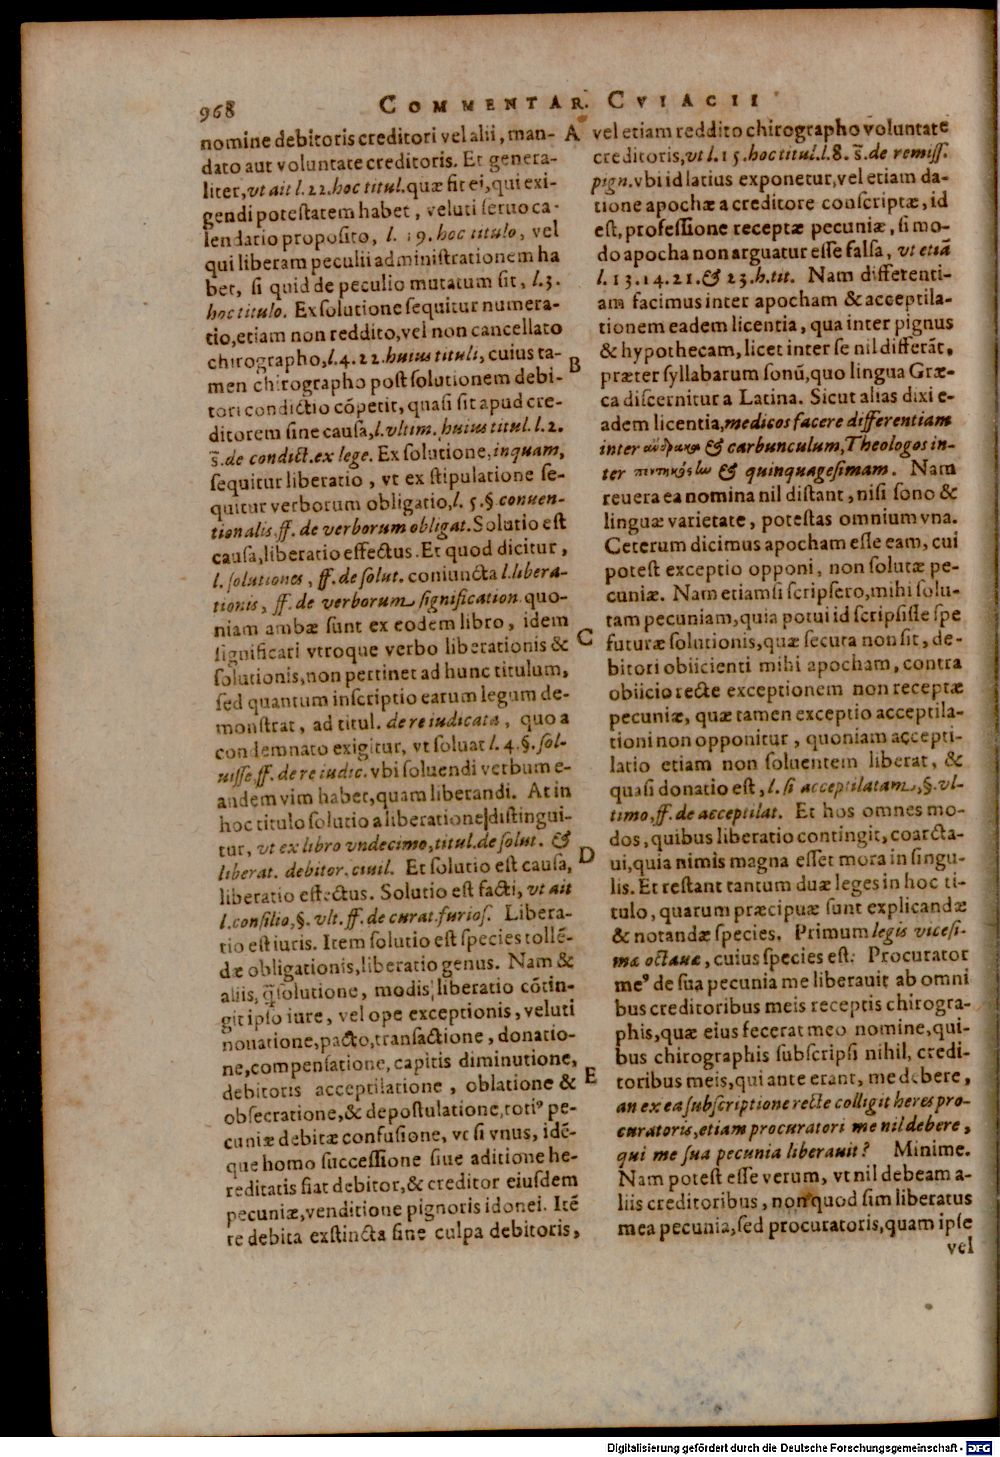 968 COMMENTAR. CVIACII
nomine debitoris creditori vel alii, man-
dato aut voluntate creditoris. Et genera-
liter, vt ait l. 22. hoc titul. quæ fit ei, qui exi-
gendi poteſtatem habet, veluti ſeruo ca-
lendario propoſito, l. 19. hoc titulo, vel
qui liberam peculii adminiſtrationem ha
bet, ſi quid de peculio mutatum ſit, l. 3.
hoc titulo. Ex ſolutione ſequitur numera-
tio, etiam non reddito, vel non cancellato
chirographo, l. 4. 22. huius tituli, cuius ta-
men chirographo poſt ſolutionem debi-
tori condictio cōpetit, quaſi ſit apud cre-
ditorem ſine cauſa, l. vltim. huius titul. l. 2.
s̄. de condict. ex lege. Ex ſolutione, inquam,
ſequitur liberatio, vt ex ſtipulatione ſe-
quitur verborum obligatio, l. 5. § conuen-
tionalis, ff. de verborum obligat. Solutio eſt
cauſa, liberatio effectus. Et quod dicitur,
l. ſolutiones, ff. de ſolut. coniuncta l. libera-
tionis, ff. de verborum ſignification. quo-
niam ambæ ſunt ex eodem libro, idem
ſignificari vtroque verbo liberationis &
ſolutionis, non pertinet ad hunc titulum,
ſed quantum inſcriptio earum legum de-
monſtrat, ad titul. de re iudicata, quo a
condemnato exigitur, vt ſoluat l. 4. §. ſol-
uiſſe, ff. de re iudic. vbi ſoluendi verbum e-
andem vim habet, quam liberandi. At in
hoc titulo ſolutio a liberatione diſtingui-
tur, vt ex libro vndecimo, titul. de ſolut. &
liberat. debitor. ciuil. Et ſolutio eſt cauſa,
liberatio effectus. Solutio eſt facti, vt ait
l. conſilio, §. vlt. ff. de curat. furioſ. Libera-
tio eſt iuris. Item ſolutio eſt ſpecies tollē-
dæ obligationis, liberatio genus. Nam &
aliis, q̄ ſolutione, modis liberatio cōtin-
git ipſo iure, vel ope exceptionis, veluti
nouatione, pacto, tranſactione, donatio-
ne, compenſatione, capitis diminutione,
debitoris acceptilatione, oblatione &
obſecratione, & depoſtulatione, totiꝰ pe-
cuniæ debitæ confuſione, vt ſi vnus, idē-
que homo ſucceſſione ſiue aditione he-
reditatis fiat debitor, & creditor eiuſdem
pecuniæ, venditione pignoris idonei. Itē
re debita exſtincta ſine culpa debitoris,
A
B
C
D
E
vel etiam reddito chirographo voluntate
creditoris, vt l. 15. hoc titul. l. 8. s̄. de remiſſ.
pign. vbi id latius exponetur, vel etiam da-
tione apochæ a creditore conſcriptæ, id
eſt, profeſſione receptæ pecuniæ, ſi mo-
do apocha non arguatur eſſe falſa, vt etiā
l. 13. 14. 21. & 23. h. tit. Nam differenti-
am facimus inter apocham & acceptila-
tionem eadem licentia, qua inter pignus
& hypothecam, licet inter ſe nil differāt,
præter ſyllabarum ſonū, quo lingua Græ-
ca diſcernitur a Latina. Sicut alias dixi e-
adem licentia, medicos facere differentiam
inter ἄνθρακα & carbunculum, Theologos in-
ter πεντηκόστω & quinquageſimam. Nam
reuera ea nomina nil diſtant, niſi ſono &
linguæ varietate, poteſtas omnium vna.
Ceterum dicimus apocham eſſe eam, cui
poteſt exceptio opponi, non ſolutæ pe-
cuniæ. Nam etiamſi ſcripſero, mihi ſolu-
tam pecuniam, quia potui id ſcripſiſſe ſpe
futuræ ſolutionis, quæ ſecuta non ſit, de-
bitori obiicienti mihi apocham, contra
obiicio recte exceptionem non receptæ
pecuniæ, quæ tamen exceptio acceptila-
tioni non opponitur, quoniam accepti-
latio etiam non ſoluentem liberat, &
quaſi donatio eſt, l. ſi acceptilatam, §. vl-
timo, ff. de acceptilat. Et hos omnes mo-
dos, quibus liberatio contingit, coarcta-
ui, quia nimis magna eſſet mora in ſingu-
lis. Et reſtant tantum duæ leges in hoc ti-
tulo, quarum præcipuæ ſunt explicandæ
& notandæ ſpecies. Primum legis viceſi-
ma octauæ, cuius ſpecies eſt: Procurator
meꝰ de ſua pecunia me liberauit ab omni
bus creditoribus meis receptis chirogra-
phis, quæ eius fecerat meo nomine, qui-
bus chirographis ſubſcripſi nihil, credi-
toribus meis, qui ante erant, me debere,
an ex ea ſubſcriptione recte colligit heres pro-
curatoris, etiam procuratori me nil debere,
qui me ſua pecunia liberauit? Minime.
Nam poteſt eſſe verum, vt nil debeam a-
liis creditoribus, non quod ſim liberatus
mea pecunia, ſed procuratoris, quam ipſe
vel
Digitalisierung gefördert durch die Deutsche Forschungsgemeinschaft - DFG